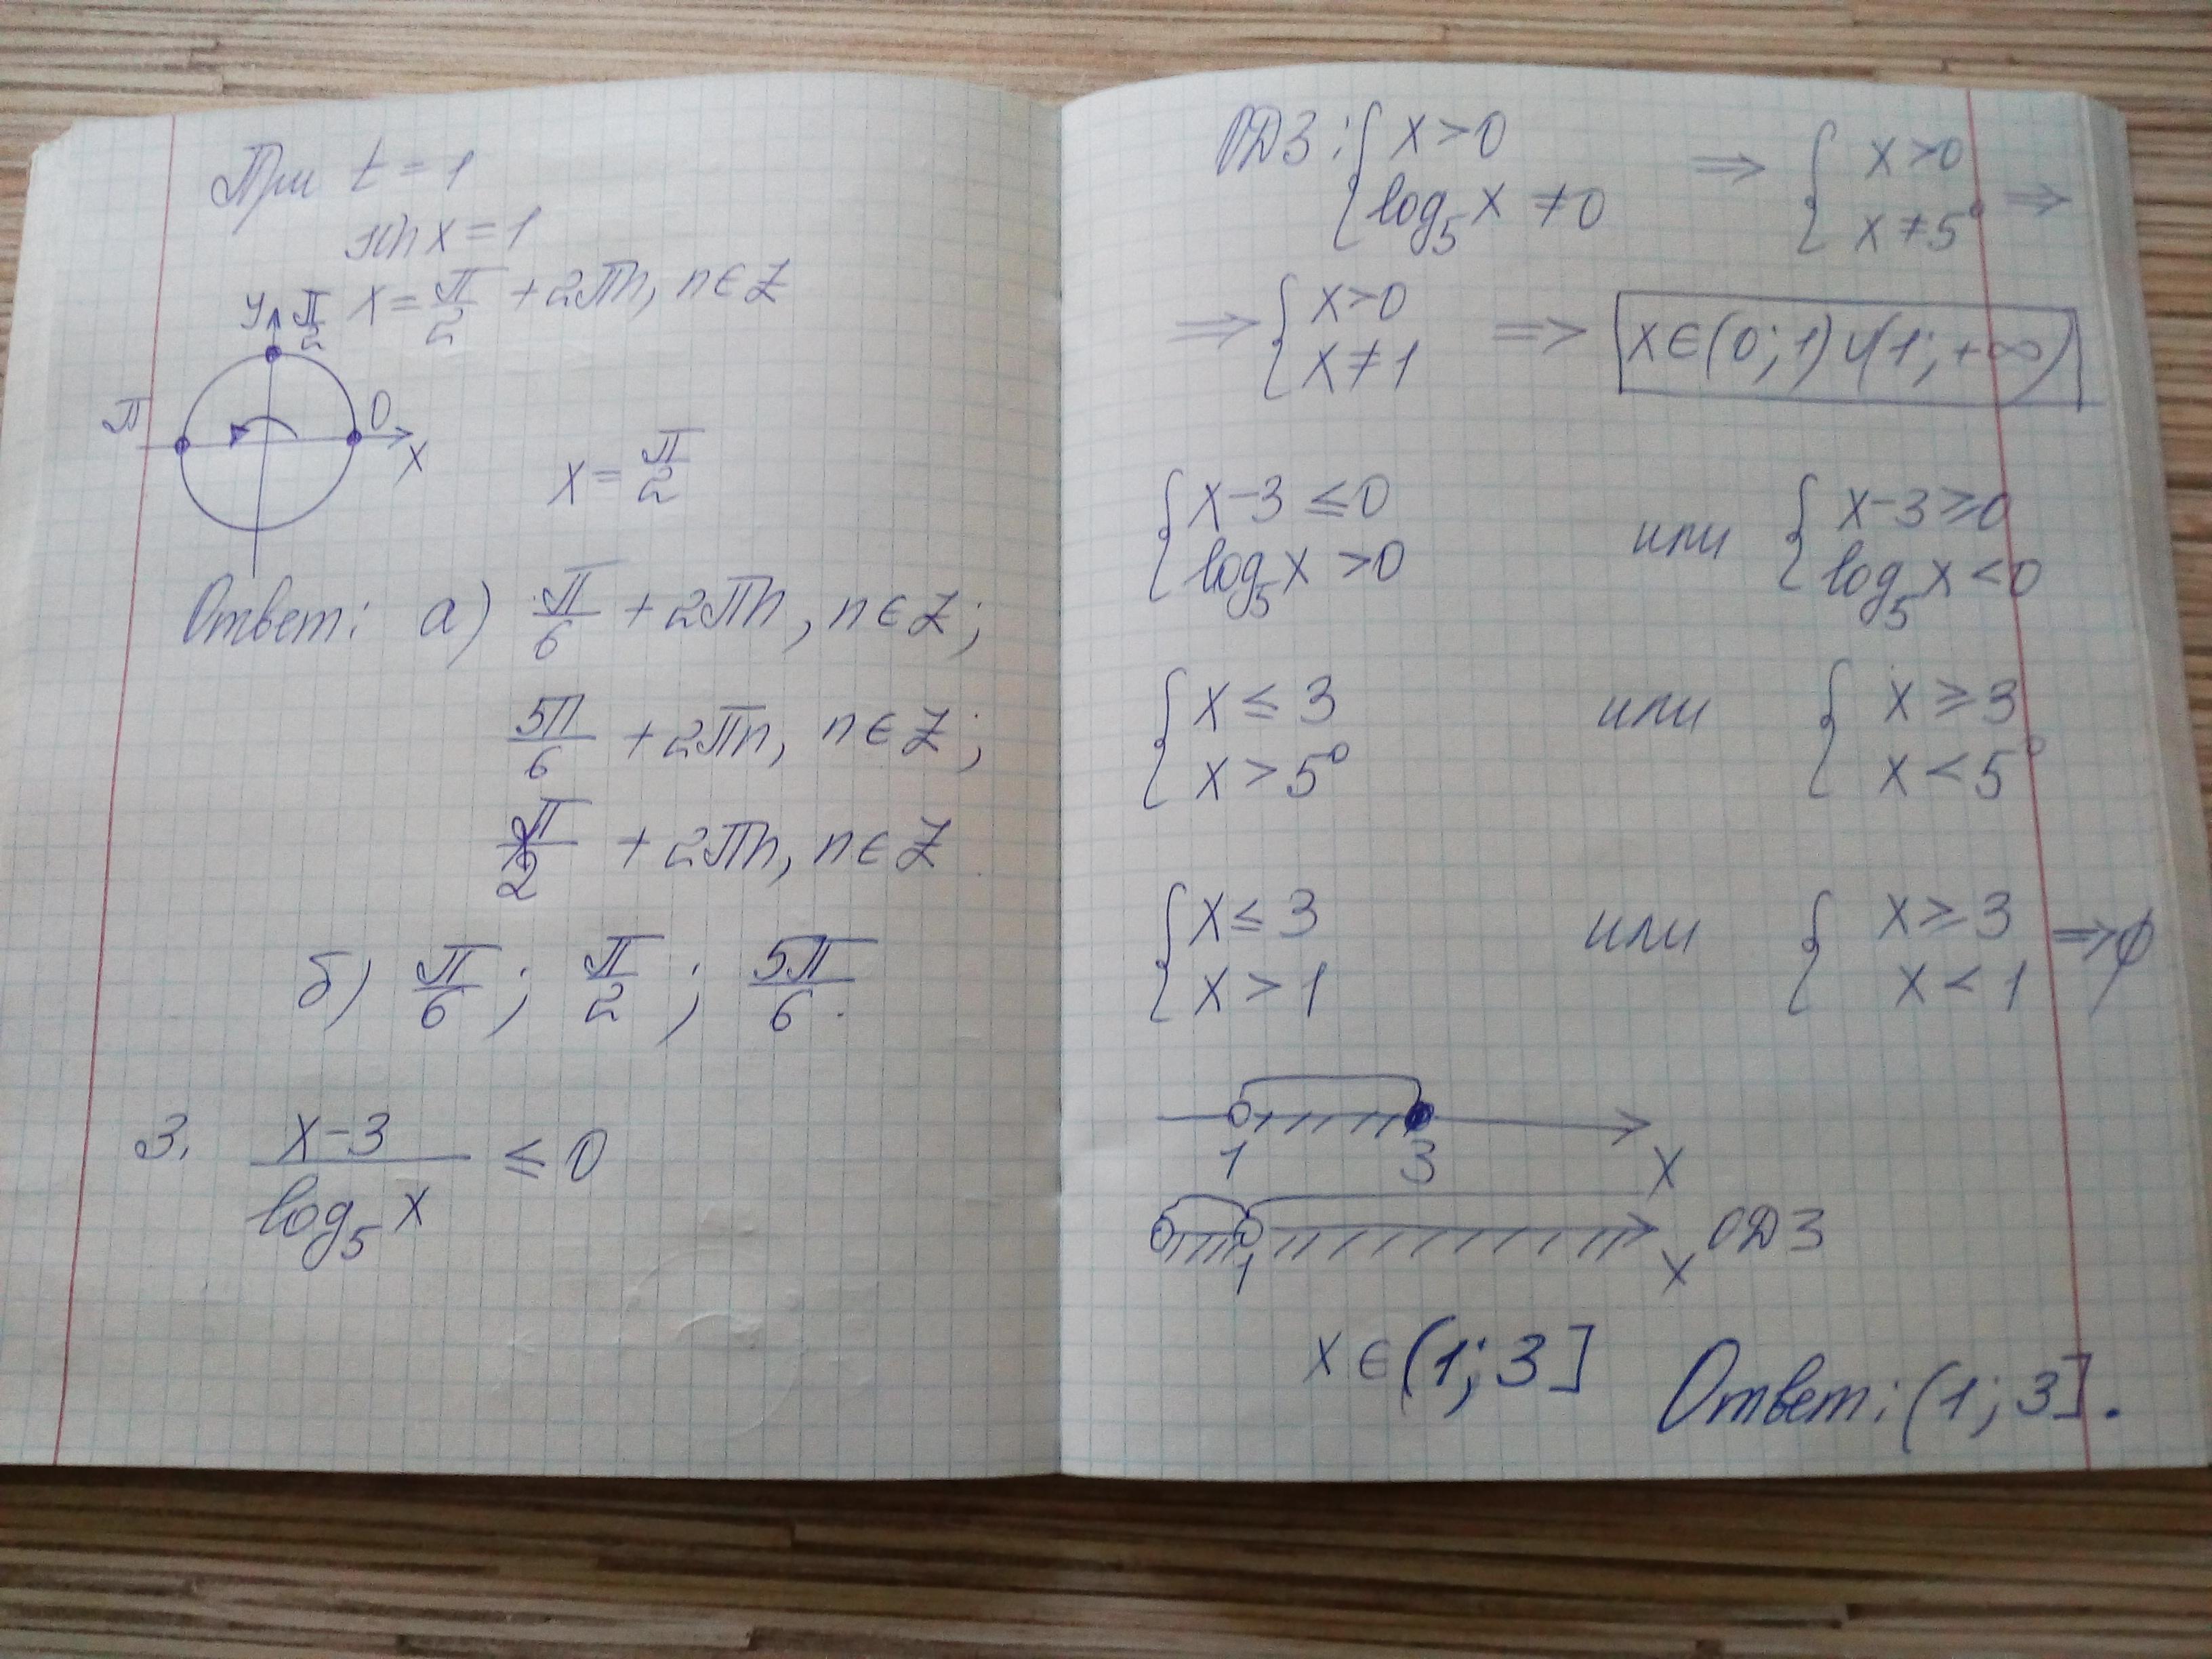 При t = 1
sin x = 1
x = π/2 + 2πn, n ∈ Z
y π/2
π 0
x
x = π/2
Ответ: а) π/6 + 2πn, n ∈ Z;
5π/6 + 2πn, n ∈ Z;
π/2 + 2πn, n ∈ Z
б) π/6; π/2; 5π/6.
3. (x-3)/(log₅ x) ≤ 0
ОДЗ: { x > 0 ; log₅ x ≠ 0 ⇒ { x > 0 ; x ≠ 5⁰ ⇒
⇒ { x > 0 ; x ≠ 1 ⇒ x ∈ (0; 1) ∪ (1; +∞)
{ x-3 ≤ 0 ; log₅ x > 0 или { x-3 ≥ 0 ; log₅ x < 0
{ x ≤ 3 ; x > 5⁰ или { x ≥ 3 ; x < 5⁰
{ x ≤ 3 ; x > 1 или { x ≥ 3 ; x < 1 ⇒ ∅
1 3 x
0 1 x ОДЗ
x ∈ (1; 3]
Ответ: (1; 3].